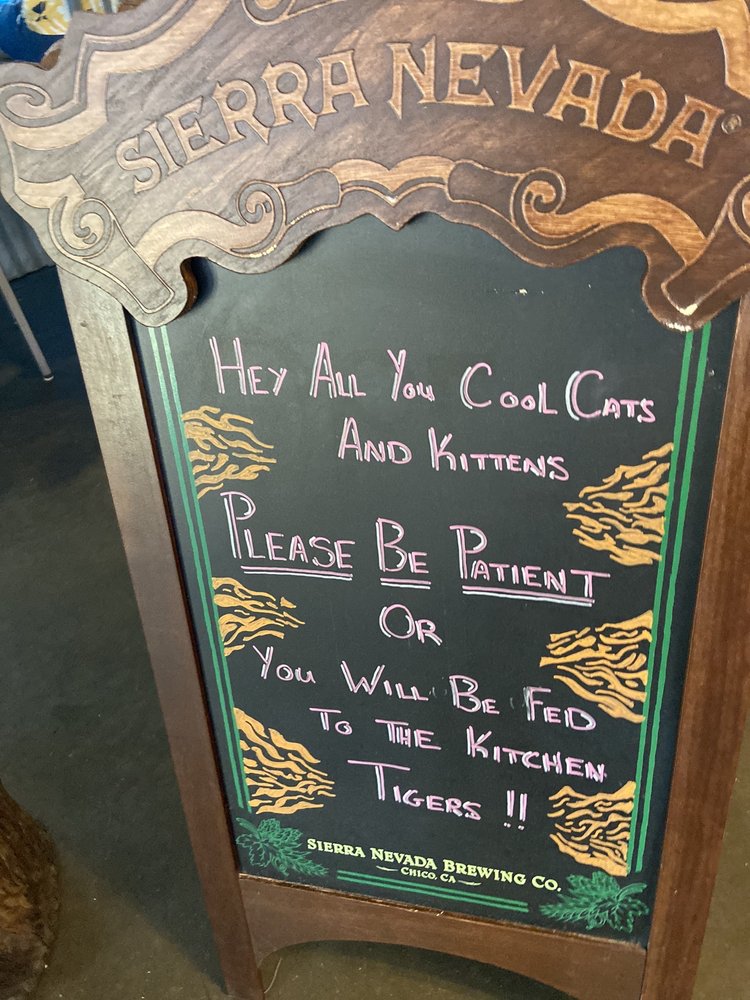 SIERRA NEVADA®
HEY ALL YOU COOL CATS
AND KITTENS
PLEASE BE PATIENT
OR
YOU WILL BE FED
TO THE KITCHEN
TIGERS !!
SIERRA NEVADA BREWING CO.
CHICO, CA